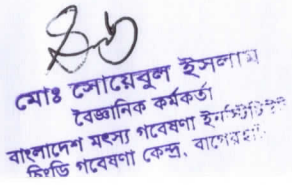 মোঃ সোয়েবুল ইসলাম
বৈজ্ঞানিক কর্মকর্তা
বাংলাদেশ মৎস্য গবেষণা ইনস্টিটিউট
চিংড়ি গবেষণা কেন্দ্র, বাগেরহাট